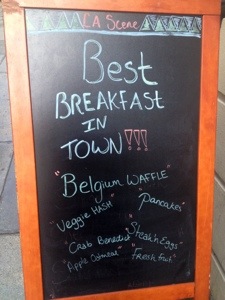 LA Scene
Best
BREAKFAST
IN
TOWN!!!
"Belgium WAFFLE"
"Veggie HASH"
"Pancakes"
"Crab Benedict"
"Steak'n Eggs"
"Apple Oatmeal"
"Fresh Fruit"